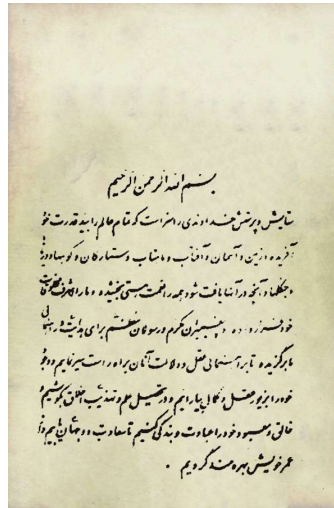 بسم الله الرحمن الرحیم
ستایش و پرستش خداوندی را سزاست که تمام عالم را بید قدرت خود
آفریده از زمین و آسمان و آفتاب و ماهتاب و ستارگان و کوهها و دریاها
و جنگلها و آنچه در آنها یافت شود همه را نعمت هستی بخشیده و ما را اشرف مخلوقات
خود قرار داده و پیغمبران مکرم و رسولان معظم برای هدایت و رهنمائی
ما برگزیده تا براهنمائی عقل و دلالت آنان براه راست سیر نمائیم و وجود
خود را بزیور عقل و کمال بیارائیم و در تحصیل علم و تهذیب اخلاق بکوشیم و
خالق و معبود خود را عبادت و بندگی کنیم تا سعادت دو جهان یابیم و از
عمر خویش بهره مند گردیم .